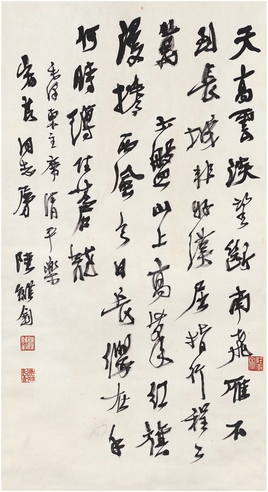 天高雲淡望斷南飛雁不
到長城非好漢屈指行程二
萬六盤山上高峯紅旗
漫捲西風今日長纓在手
何時縛住蒼龍
毛澤東主席清平樂
同志屬 陸維釗